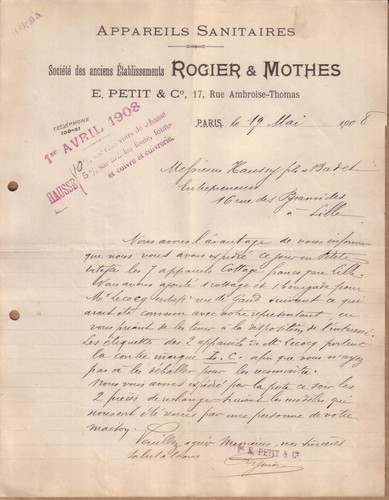 APPAREILS SANITAIRES
Société des anciens Établissements ROGIER & MOTHES
E. PETIT & Co, 17, Rue Ambroise-Thomas
TÉLÉPHONE
1er AVRIL 1908
HAUSSE
10 %
5 %
et cuivre et cuivrerie
PARIS, le 19 Mai 1908
Messieurs Haussy
Entrepreneurs
16 rue des Pyramides
à Lille
Nous avons l'avantage de vous informer
que nous vous avons expédié ce jour en
les 7 appareils Cottage franco gare Lille
Nous avons ajouté 1 cottage et 1
Mr Lecocq rue de Gand suivant ce qui
avait été convenu avec notre représentant, en
vous priant de les tenir à la disposition de l'intéressé.
Les étiquettes des 2 appareils de M. Lecocq portent
la contre marque L. C. afin que vous n'ayez
pas à les déballer pour les reconnaître.
Nous vous avons expédié par la poste ce soir les
2 pièces de rechange suivant les modèles qui
nous ont été remis par une personne de votre
maison.
Veuillez agréer Messieurs, nos sincères
salutations
Pr E. PETIT & Co